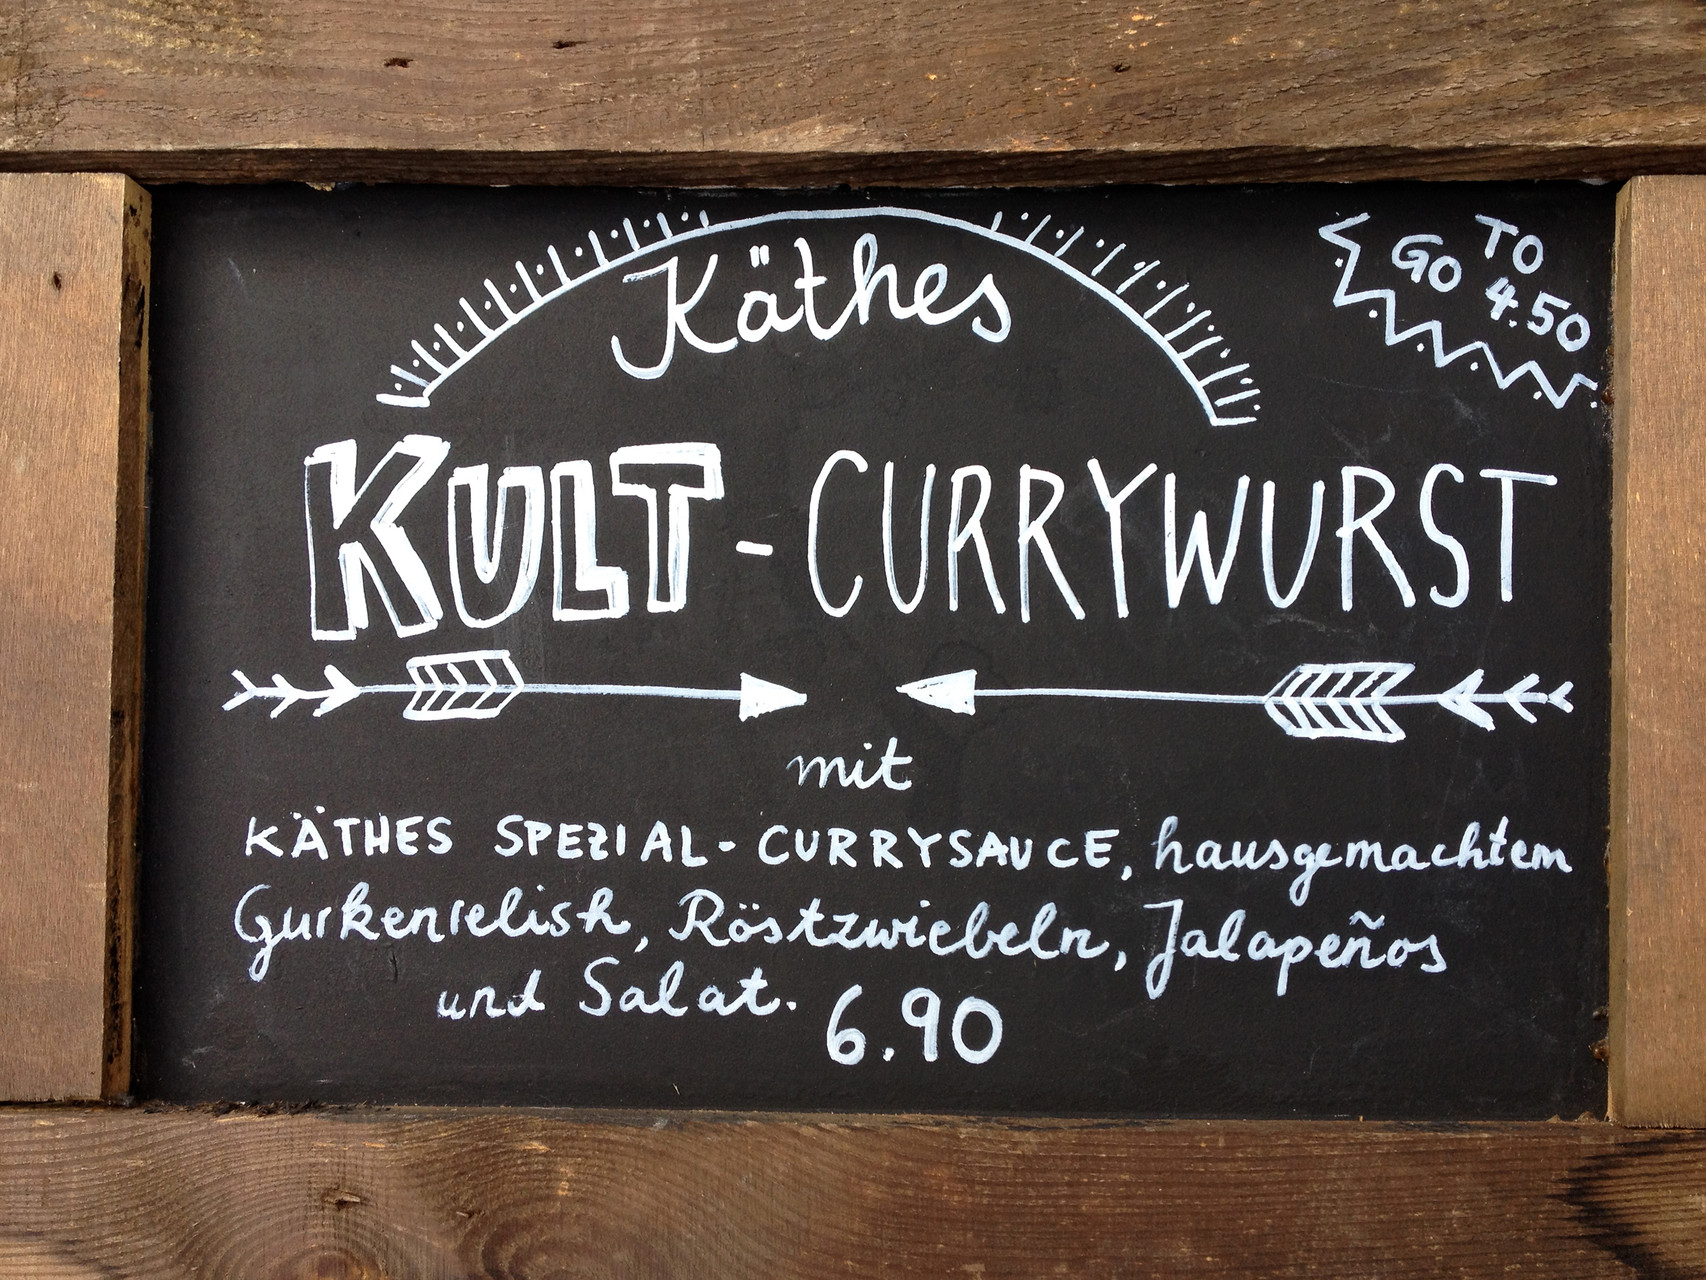 Käthes
TO
GO 4.50
KULT-CURRYWURST
mit
KÄTHES SPEZIAL-CURRYSAUCE, hausgemachtem
Gurkenrelish, Röstzwiebeln, Jalapeños
und Salat. 6.90